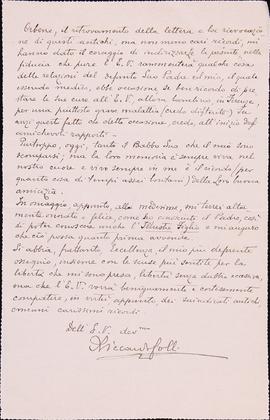 Orbene, il ritrovamento della lettera e la rievocazio-
ne di questi antichi, ma non meno cari ricordi, mi
hanno dato il coraggio di indirizzarle la presente, nella
fiducia che pure l'E.V. rammenterà qualche cosa
delle relazioni del defunto Suo Padre col mio, il quale
essendo medico, ebbe occasione se ben ricordo di pre-
stare le sue cure all'E.V. allora bambino, in Firenze,
per una piuttosto grave malattia (credo difterite). Fu
anzi questo fatto che dette occasione, credo, all'inizio degli
amichevoli rapporti.
Purtroppo, oggi, tanto il Babbo Suo che il mio sono
scomparsi; ma la loro memoria è sempre viva nel
nostro cuore e vivo sempre in me è il ricordo, per
quanto cosa di tempi assai lontani, della Loro buona
amicizia.
In omaggio appunto, alla medesima, mi terrei alta-
mente onorato e felice, come ho conosciuto il Padre, così
di poter conoscere anche l'Illustre Figlio e mi auguro
che ciò possa quanto prima avvenire.
Si abbia, frattanto, Eccellenza, il mio più deferente
ossequio, insieme con le scuse più sentite per la
libertà che mi sono presa, libertà senza dubbio eccessiva,
ma che l'E.V. vorrà benignamente e cortesemente
compatire, in virtù appunto dei suindicati antichi
comuni carissimi ricordi.
Dell'E.V. dev.mo